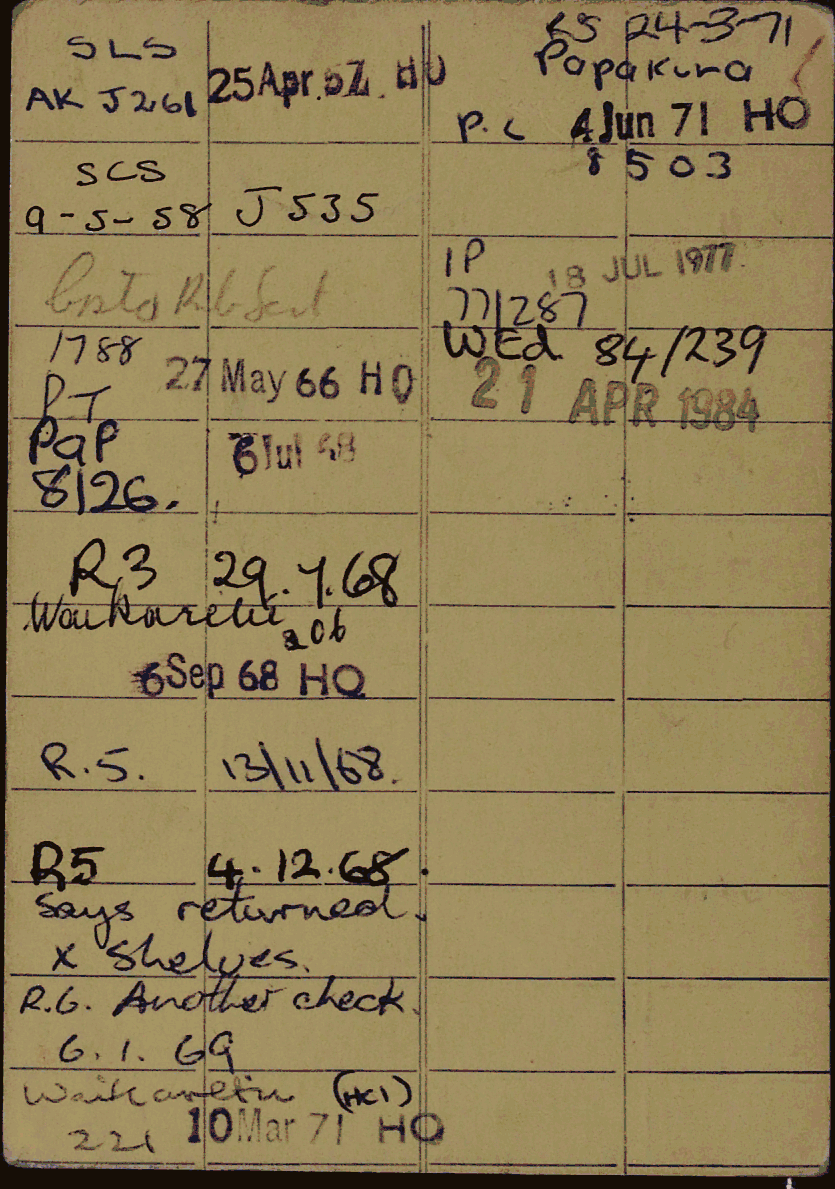 SLS
AK J261 25 Apr. 57. HO
SCS
9-5-58 J535
1788
PT 27 May 66 HO
Pap 6 Jul 68
8126.
R3 29.7.68
Waikaretu 206
6 Sep 68 HO
R.5. 13/11/68.
R5 4.12.68.
Says returned.
x Shelves.
R.6. Another check.
6.1.69
Waikaretu (HC1)
221 10 Mar 71 HO
24-3-71
Papakura
P.C 4 Jun 71 HO
8503
IP 18 JUL 1977
77/287
WEd. 84/239
21 APR 1984